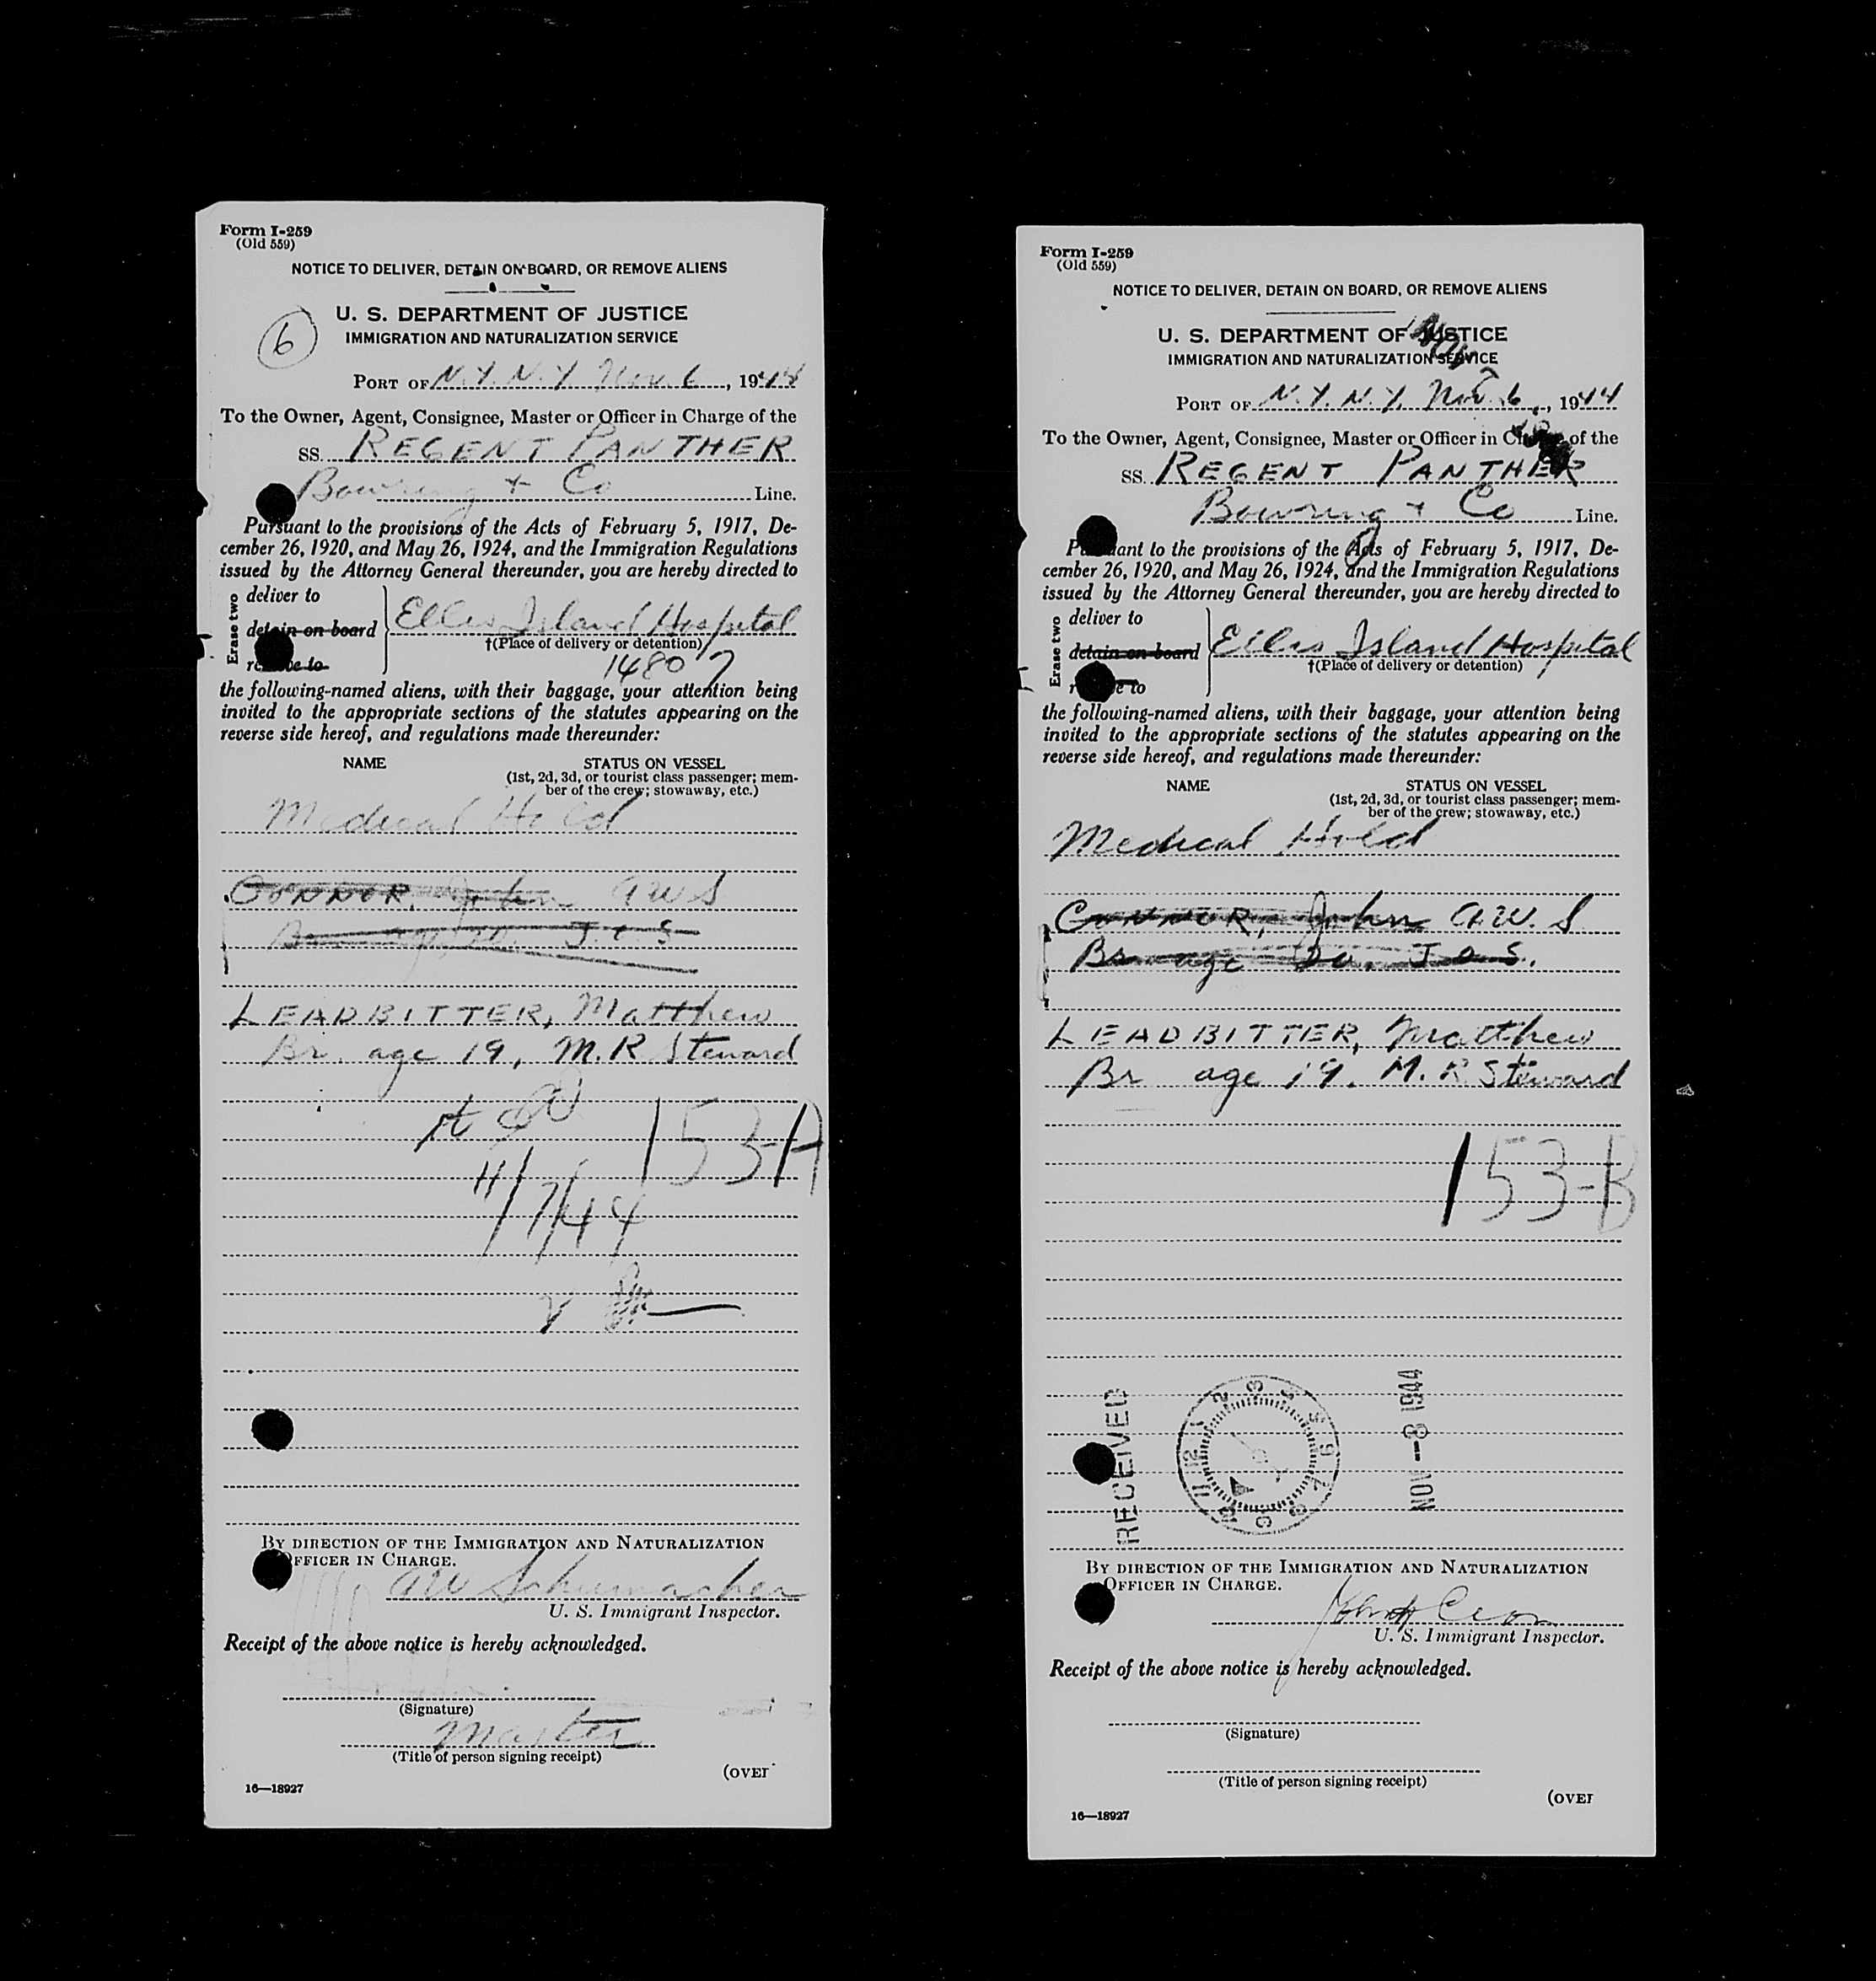 Form I-259
(Old 559)
NOTICE TO DELIVER, DETAIN ON BOARD, OR REMOVE ALIENS
U. S. DEPARTMENT OF JUSTICE
6
IMMIGRATION AND NATURALIZATION SERVICE
PORT OF N.Y. N.Y. Nov. 6, 1944
To the Owner, Agent, Consignee, Master or Officer in Charge of the
SS. REGENT PANTHER
Bowring + Co Line.
Pursuant to the provisions of the Acts of February 5, 1917, De-
cember 26, 1920, and May 26, 1924, and the Immigration Regulations
issued by the Attorney General thereunder, you are hereby directed to
Erase two
deliver to
detain on board
remove to
Ellis Island Hospital
†(Place of delivery or detention)
1480
the following-named aliens, with their baggage, your attention being
invited to the appropriate sections of the statutes appearing on the
reverse side hereof, and regulations made thereunder:
NAME STATUS ON VESSEL
(1st, 2d, 3d, or tourist class passenger; mem-
ber of the crew; stowaway, etc.)
Medical Hold
CONNOR, John AWS
Br age 20. J.O.S
LEADBITTER, Matthew
Br. age 19, M.R Steward
153-A
11/7/44
BY DIRECTION OF THE IMMIGRATION AND NATURALIZATION
OFFICER IN CHARGE.
AW Schumacher
U. S. Immigrant Inspector.
Receipt of the above notice is hereby acknowledged.
(Signature)
Master
(Title of person signing receipt)
(OVER
16—18927
Form I-259
(Old 559)
NOTICE TO DELIVER, DETAIN ON BOARD, OR REMOVE ALIENS
U. S. DEPARTMENT OF JUSTICE
IMMIGRATION AND NATURALIZATION SERVICE
PORT OF N.Y. N.Y. Nov. 6, 1944
To the Owner, Agent, Consignee, Master or Officer in Charge of the
SS. REGENT PANTHER
Bowring + Co Line.
Pursuant to the provisions of the Acts of February 5, 1917, De-
cember 26, 1920, and May 26, 1924, and the Immigration Regulations
issued by the Attorney General thereunder, you are hereby directed to
Erase two
deliver to
detain on board
remove to
Ellis Island Hospital
†(Place of delivery or detention)
the following-named aliens, with their baggage, your attention being
invited to the appropriate sections of the statutes appearing on the
reverse side hereof, and regulations made thereunder:
NAME STATUS ON VESSEL
(1st, 2d, 3d, or tourist class passenger; mem-
ber of the crew; stowaway, etc.)
Medical Hold
CONNOR, John A.W.S
Br age 20. J.O.S.
LEADBITTER, Matthew
Br age 19. M.R. Steward
153-B
RECEIVED
NOV -8 1944
BY DIRECTION OF THE IMMIGRATION AND NATURALIZATION
OFFICER IN CHARGE.
U. S. Immigrant Inspector.
Receipt of the above notice is hereby acknowledged.
(Signature)
(Title of person signing receipt)
(OVER
16—18927